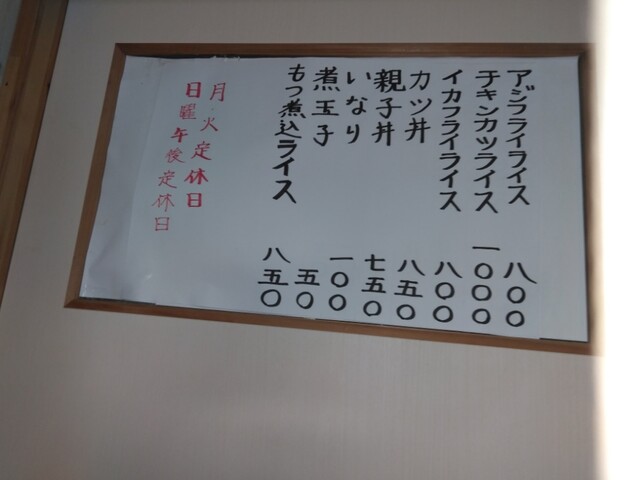 アジフライライス 八〇〇
チキンカツライス 一〇〇〇
イカフライライス 八〇〇
カツ丼 八五〇
親子丼 七五〇
いなり 一〇〇
煮玉子 五〇
もつ煮込ライス 八五〇
月・火定休日
日曜午後定休日